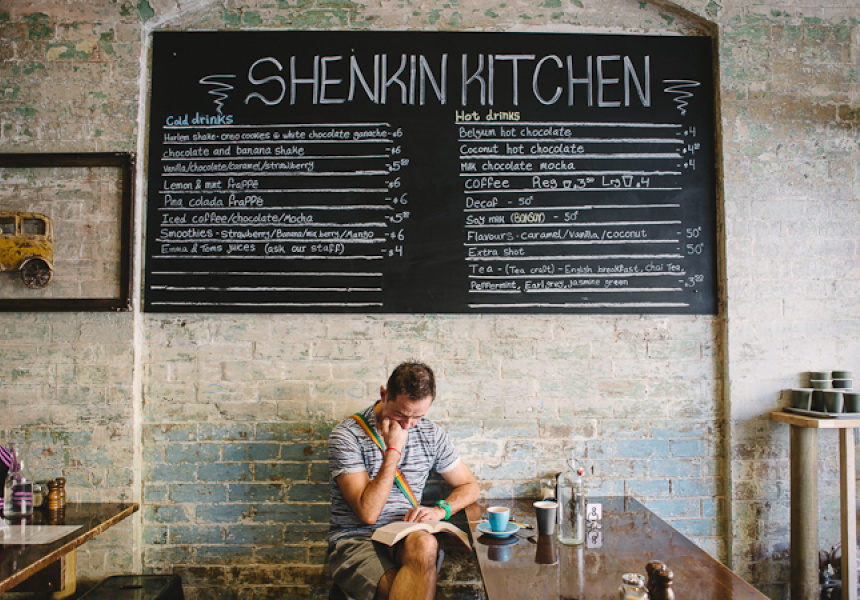 SHENKIN KITCHEN
Cold drinks
Harlem shake-oreo cookies & white chocolate ganache-$6
chocolate and banana shake -$6
Vanilla/chocolate/caramel/strawberry -$5.50
Lemon & mint frappé -$6
Pina colada frappé -$6
Iced coffee/chocolate/Mocha -$5.50
Smoothies-strawberry/Banana/mix berry/Mango -$6
Emma & Toms juices (ask our staff) -$4
Hot drinks
Belgium hot chocolate -$4
Coconut hot chocolate -$4.50
Milk chocolate mocha -$4
coffee Reg 3.50 Lrg 4
Decaf - 50¢
Soy milk (BONSOY) - 50¢
Flavours-caramel/Vanilla/coconut - 50¢
Extra shot - 50¢
Tea - (Tea craft) - English breakfast, chai Tea,
Peppermint, Earl grey, jasmine green